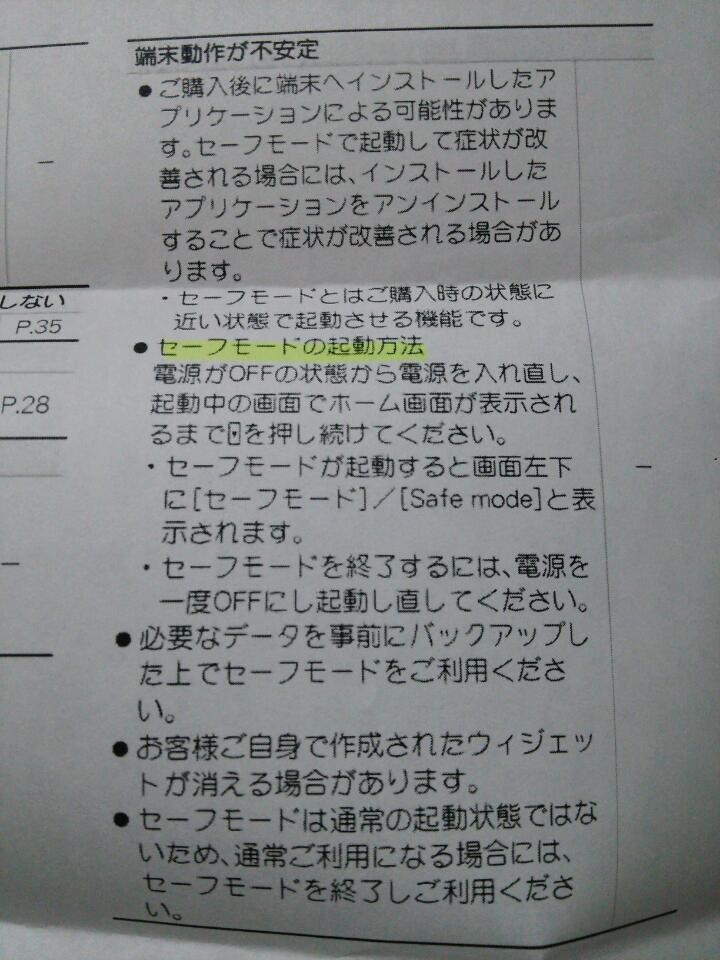 しない
P.35
P.28
端末動作が不安定
●ご購入後に端末へインストールしたア
プリケーションによる可能性がありま
す。セーフモードで起動して症状が改
善される場合には、インストールした
アプリケーションをアンインストール
することで症状が改善される場合があ
ります。
・セーフモードとはご購入時の状態に
近い状態で起動させる機能です。
●セーフモードの起動方法
電源がOFFの状態から電源を入れ直し、
起動中の画面でホーム画面が表示され
るまでを押し続けてください。
・セーフモードが起動すると画面左下
に[セーフモード]／[Safe mode]と表
示されます。
・セーフモードを終了するには、電源を
一度OFFにし起動し直してください。
●必要なデータを事前にバックアップし
た上でセーフモードをご利用くださ
い。
●お客様ご自身で作成されたウィジェッ
トが消える場合があります。
●セーフモードは通常の起動状態ではな
いため、通常ご利用になる場合には、
セーフモードを終了しご利用くださ
い。